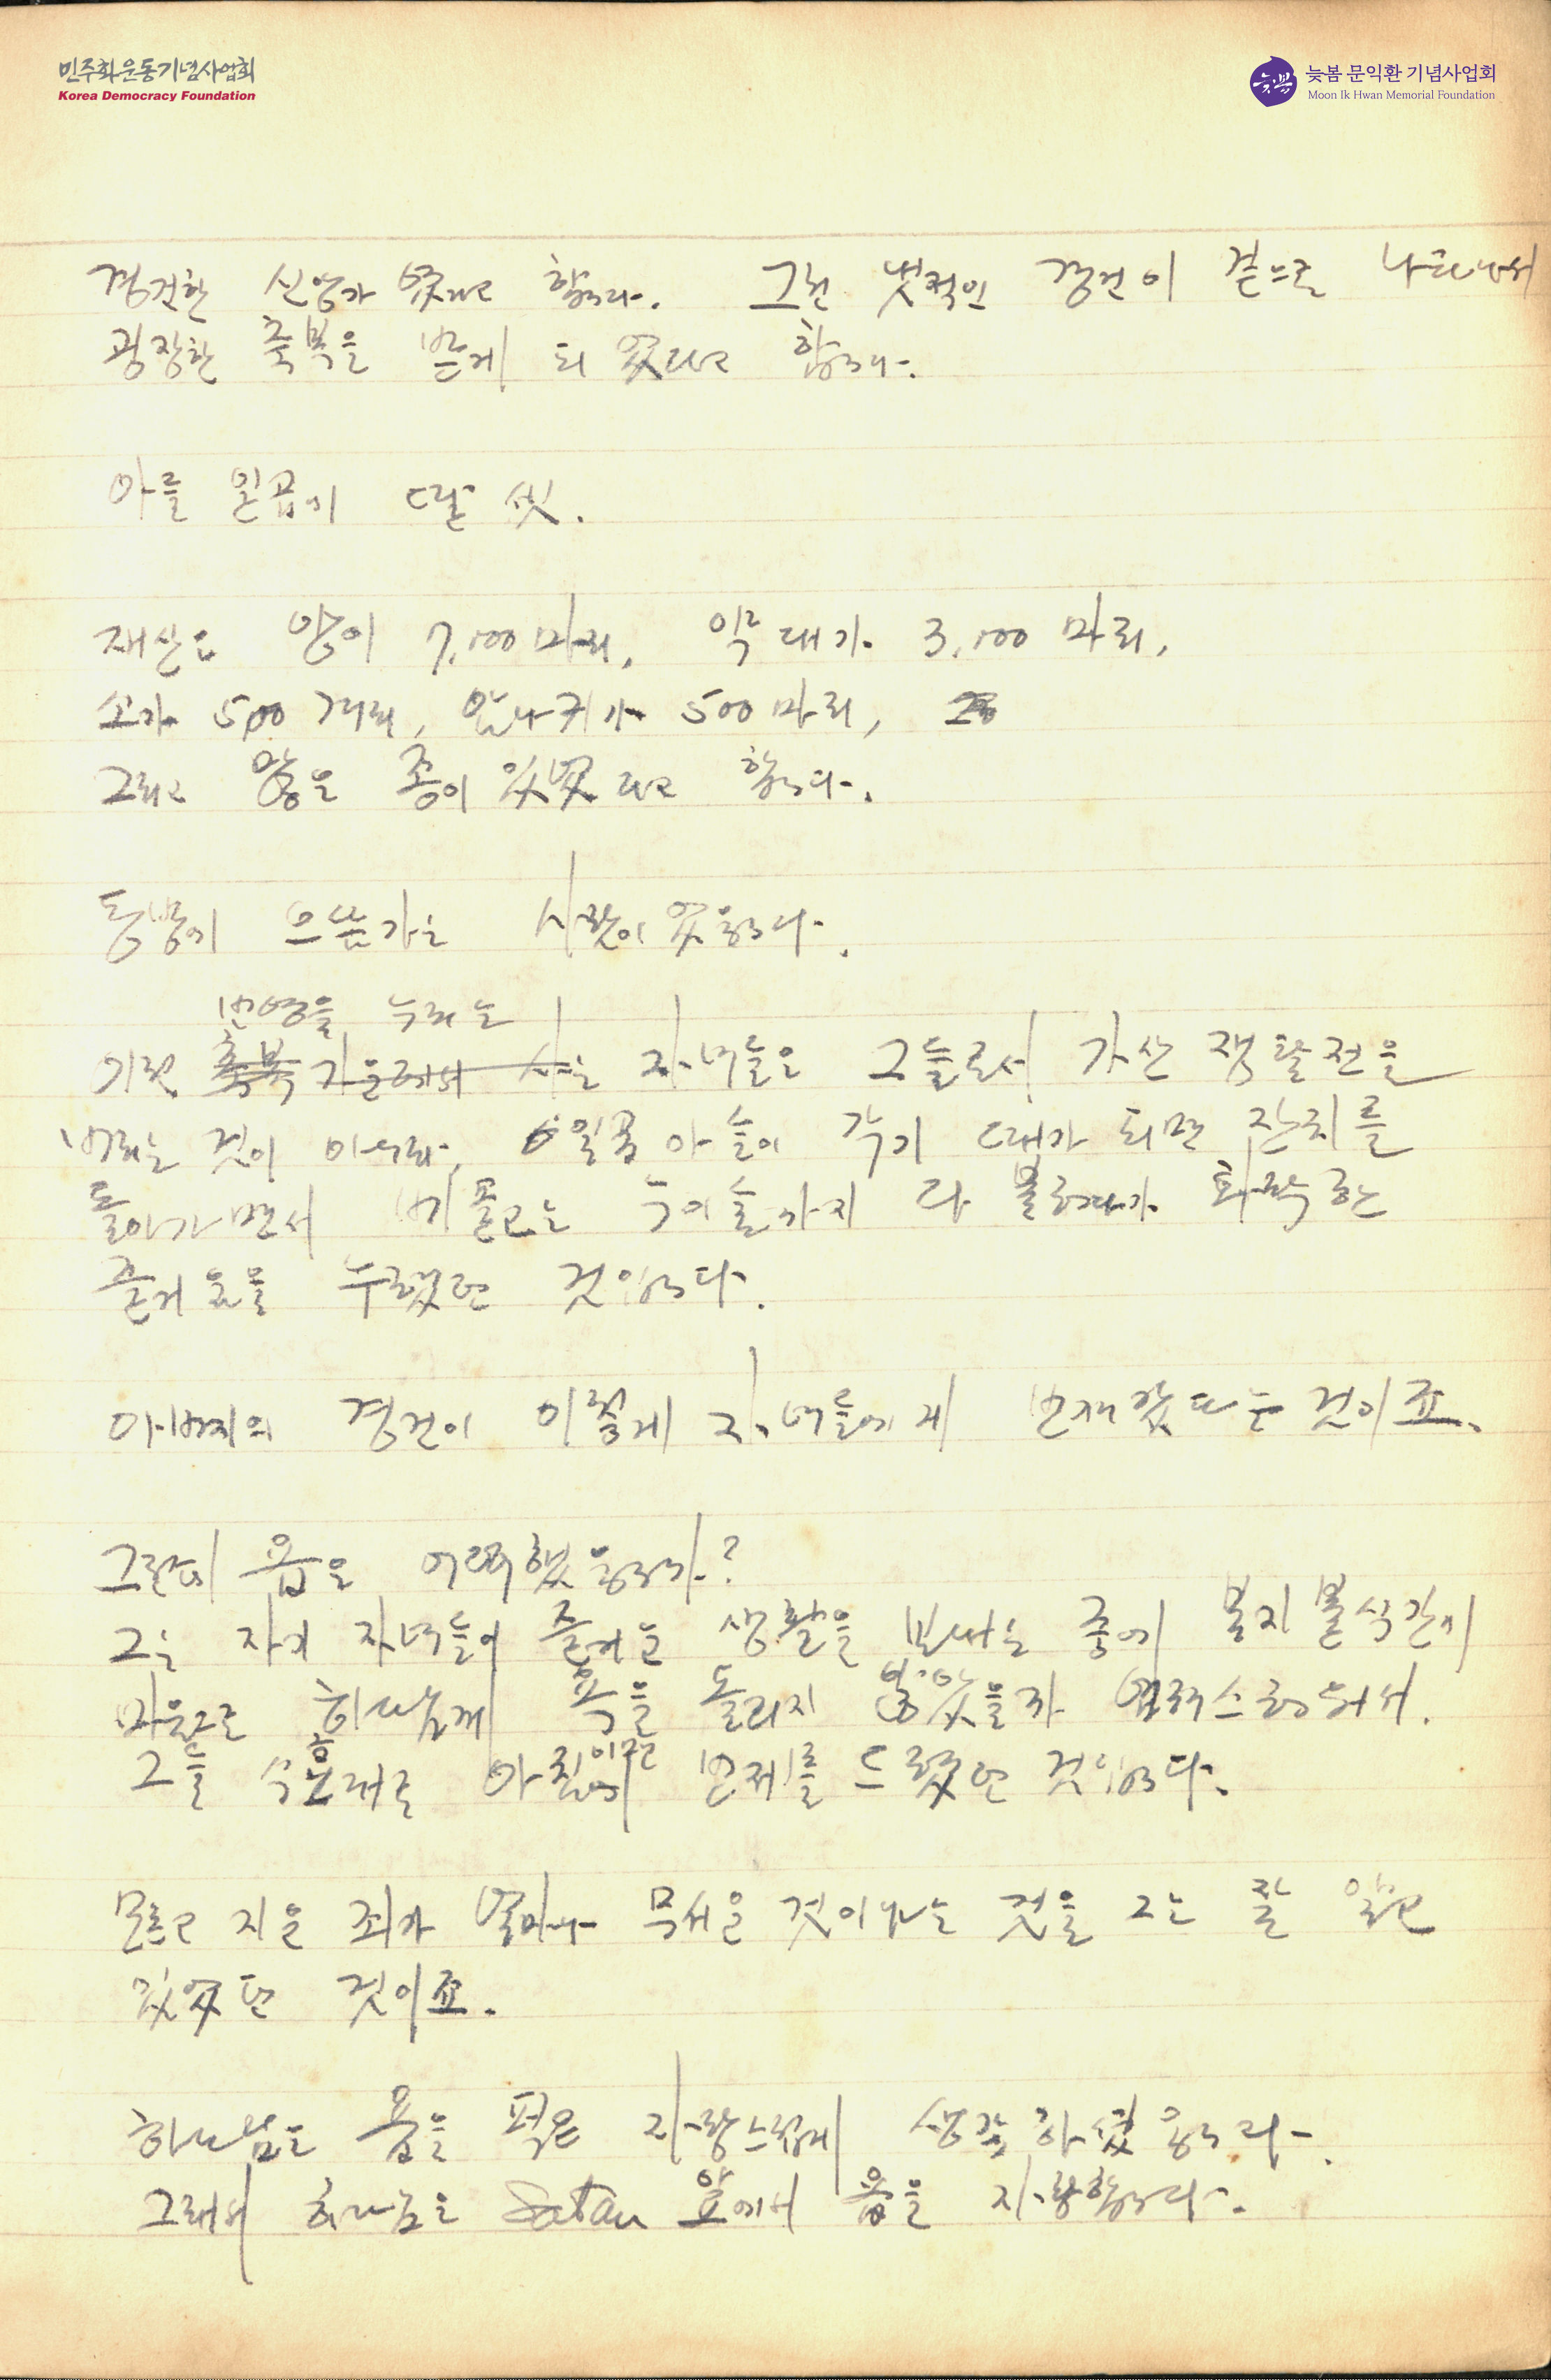 민주화운동기념사업회
Korea Democracy Foundation
늦봄 문익환 기념사업회
Moon Ik Hwan Memorial Foundation
경건한 신앙가 였다고 합니다. 그런 냇적인 경건이 겉으로 나타나서
굉장한 축복을 받게 되었다고 합니다.
아들 일곱에 딸 셋.
재산은 양이 7,000마리, 약대가 3,000마리,
소가 500 겨리, 암나귀가 500마리,
그리고 많은 종이 있었다고 합니다.
동방에 으뜸가는 사람이었읍니다.
번영을 누리는
이런 축복 가운데서 사는 자녀들은 그들로서 가산 쟁탈전을
버리는 것이 아니라, 일곱 아들이 각기 때가 되면 잔치를
돌아가면서 베풀고는 누이들까지 다 불러다가 화락한
즐거움을 누렸던 것입니다.
아버지의 경건이 이렇게 자녀들에게 번져갔다는 것이죠.
그런데 욥은 어떠했읍니까?
그는 자기 자녀들이 즐거운 생활을 보내는 중에 부지불식간에
마음으로 하나님께 욕을 돌리지 않았을까 염려스러워서.
그들 식구대로 아침마다 번제를 드렸던 것입니다.
모르고 지은 죄가 얼마나 무서운 것이냐는 것을 그는 잘 알고
있었던 것이죠.
하나님은 욥을 퍽은 자랑스럽게 생각하셨읍니다.
그래서 하나님은 Satan 앞에서 욥을 자랑합니다.